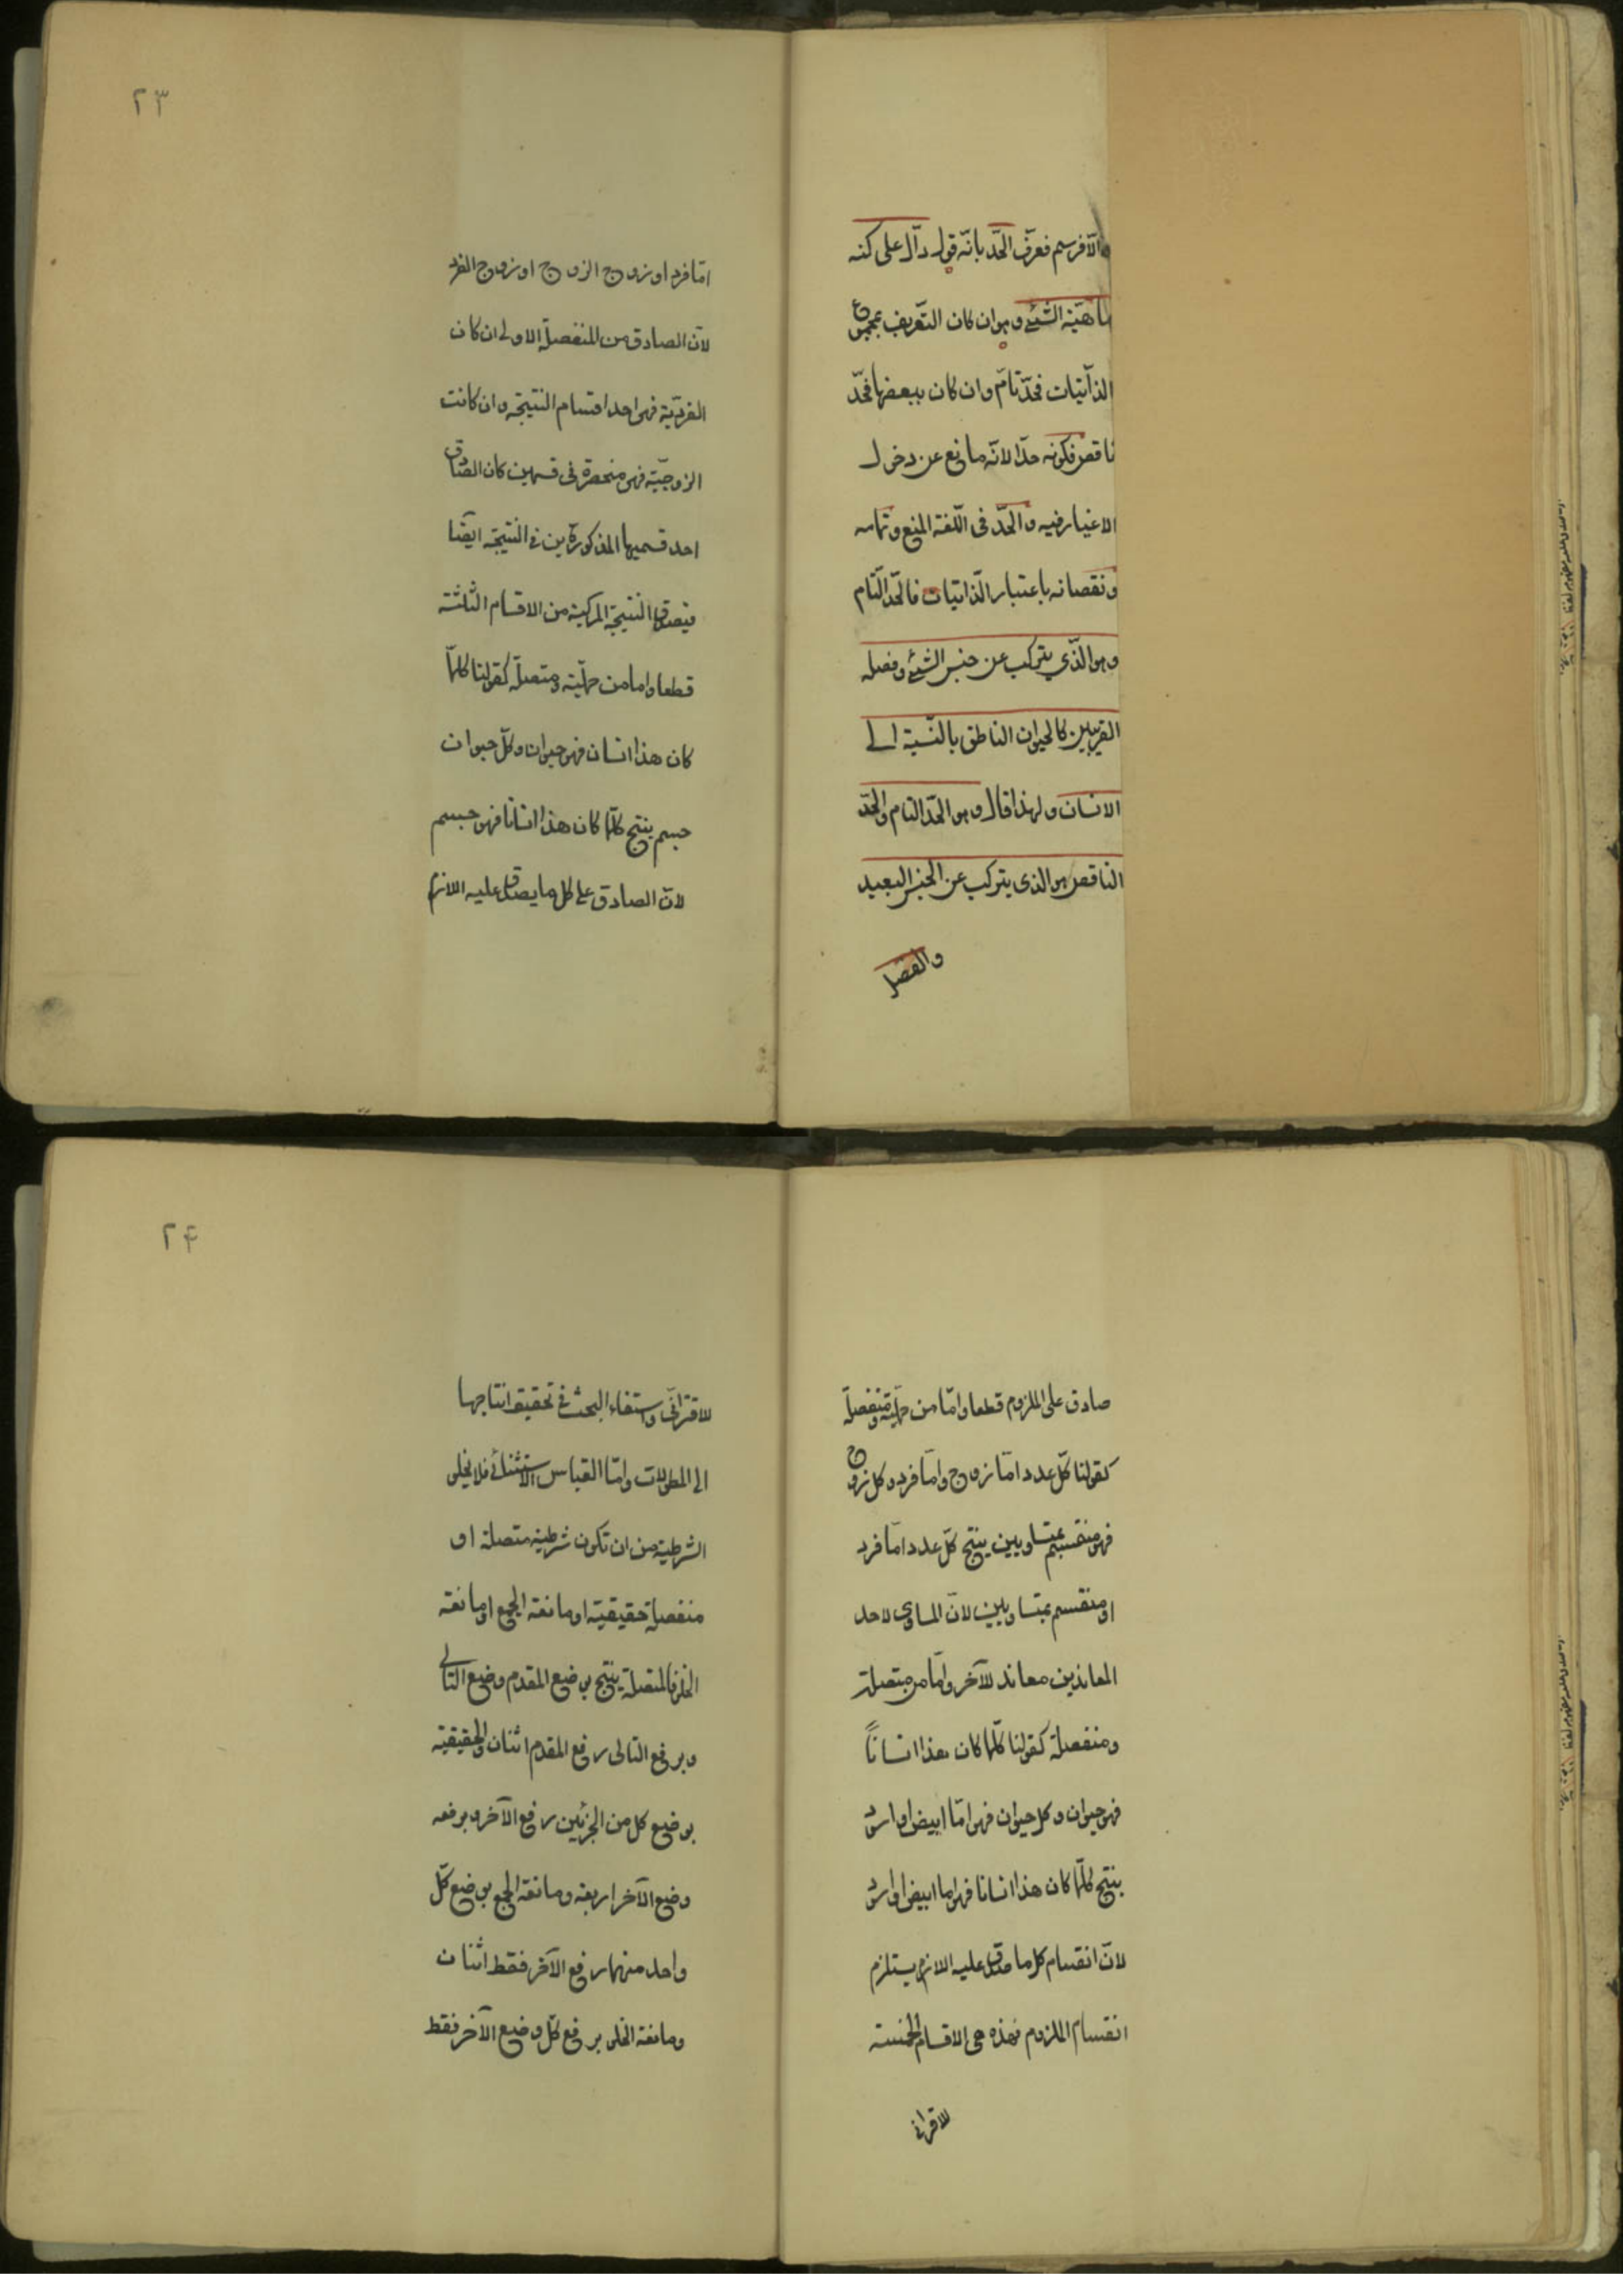 والا فرسم فعرّف الحّد بانّه قول دآل على كنه
ماهيّة الشيئ وهو ان كان التّعريف بمجموع
الذآتيات فحّد تآمّ وان كان ببعضها فحّد
ناقص فكونه حدّا لانّه مانع عن دخول
الاغيار فيه والحّد فى اللّغة المنع وتمامه
ونقصانه باعتبار الذّاتيات فالحّد التّام
وهو الذّي يتركب عن جنس الشيئ وفصله
القريبين كالحيوان الناطق بالنّسبة الى
الانسان ولهذا قال وهو الحّد التام والحّد
الناقص هو الذى يتركب عن الجنس البعيد
والفصل
٢٣
امّا فرد او زوج الزوج او زوج الفرد
لانّ الصادق من المنفصلة الاولى ان كان
الفرديّة فهى احد اقسام النتيجة وان كانت
الزوجيّة فهى منحصرة فى قسمين كان الصّادق
احد قسميها المذكورة ين فى النتيجة ايضا
فيصدق النتيجة المركبة من الاقسام الثلثة
قطعا واما من حمليّة ومتصلّة كقولنا كلمّا
كان هذا انسان فهو حيوان وكلّ حيوان
جسم ينتج كلمّا كان هذا انسانا فهو جسم
لانّ الصادق على كل ما يصدق عليه اللازم
صادق على الملزوم قطعا وامّا من حمليّة ومنفصلّة
كقولنا كلّ عدد امّا زوج وامّا فرد وكل زوج
فهو منقسم بمتساويين ينتج كلّ عدد امّا فرد
او منقسم بمتساويين لانّ المساوى لاحد
المعاندين معاند للآخر وامّا من متصلة
ومنفصلة كقولنا كلّما كان هذا انساناً
فهو حيوان وكل حيوان فهو امّا ابيض او اسود
ينتج كلمّا كان هذا انسانا فهو اما ابيض او اسود
لانّ انقسام كل ما صدق عليه اللازم يستلزم
انقسام الملزوم فهذه هى الاقسام الخمسة
للاقترانى
٢۴
للاقترانّى واستقاء البحث فى تحقيق انتاجها
الى المطولات وامّا القياس الاستثنائى فلا يخلى
الشرطية من ان تكون شرطية متصلة او
منفصلة حقيقيّة او مانعة الجمع او مانعة
الخلو فالمتصلة ينتج بوضع المقدم وضع التالى
وبرفع التالى رفع المقدم اثنان والحقيقية
بوضع كل من الجزئين رفع الآخر وبرفعه
وضع الآخر اربعة ومانعة الجمع بوضع كلّ
واحد منهما رفع الآخر فقط اثنان
ومانعة الخلو برفع كلّ وضع الآخر فقط